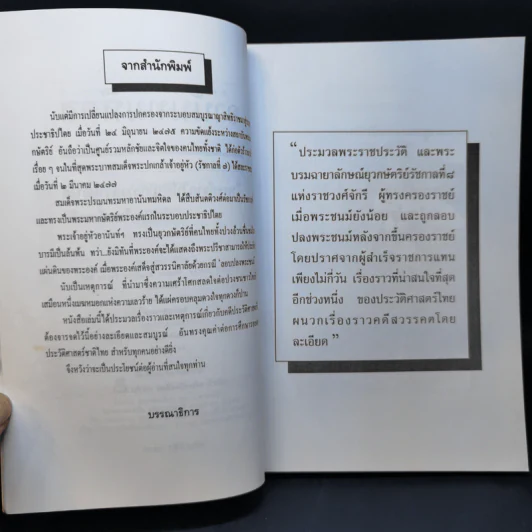 จากสำนักพิมพ์
นับแต่มีการเปลี่ยนแปลงการปกครองจากระบอบสมบูรณาญาสิทธิราช
ประชาธิปไตย เมื่อวันที่ ๒๔ มิถุนายน ๒๔๗๕ ความขัดแย้งระหว่าง
กษัตริย์ อันถือว่าเป็นศูนย์รวมหลักชัยและจิตใจของคนไทยทั้งชาติ ได้
เรื่อย ๆ จนในที่สุดพระบาทสมเด็จพระปกเกล้าเจ้าอยู่หัว (รัชกาลที่ ๗) ได้
เมื่อวันที่ ๒ มีนาคม ๒๔๗๗
สมเด็จพระปรเมนทรมหาอานันทมหิดล ได้สืบสันตติวงศ์ต่อมา
และทรงเป็นพระมหากษัตริย์พระองค์แรกในระบอบประชาธิปไตย
พระเจ้าอยู่หัวอานันท์ฯ ทรงเป็นยุวกษัตริย์ที่คนไทยทั้งปวง
บารมีเป็นล้นพ้น ทว่า..ยังมิทันที่พระองค์จะได้แสดงถึงพระปรีชาสามารถ
แผ่นดินของพระองค์ เมื่อพระองค์เสด็จสู่สวรรคาลัยด้วยกรณี "ลอบปลงพระชนม์"
นับเป็นเหตุการณ์ ที่นำมาซึ่งความเศร้าโศกสลดใจต่อปวงชนชาวไทย
เสมือนหนึ่งเมฆหมอกแห่งความเลวร้าย ได้แผ่ครอบคลุมดวงใจทุกดวงก็ปาน
หนังสือเล่มนี้ได้ประมวลเรื่องราวและเหตุการณ์เกี่ยวกับคดีประวัติศาสตร์
ต้องจารจดไว้นี้อย่างละเอียดและสมบูรณ์ อันทรงคุณค่าต่อการศึกษา
ประวัติศาสตร์ชาติไทย สำหรับทุกคนอย่างดียิ่ง
จึงหวังว่าจะเป็นประโยชน์ต่อผู้อ่านที่สนใจทุกท่าน
บรรณาธิการ
"ประมวลพระราชประวัติ และพระ
บรมฉายาลักษณ์ยุวกษัตริย์รัชกาลที่๘
แห่งราชวงศ์จักรี ผู้ทรงครองราชย์
เมื่อพระชนม์ยังน้อย และถูกลอบ
ปลงพระชนม์หลังจากขึ้นครองราชย์
โดยปราศจากผู้สำเร็จราชการแทน
เพียงไม่กี่วัน เรื่องราวที่น่าสนใจที่สุด
อีกช่วงหนึ่ง ของประวัติศาสตร์ไทย
ผนวกเรื่องราวคดีสวรรคตโดย
ละเอียด"